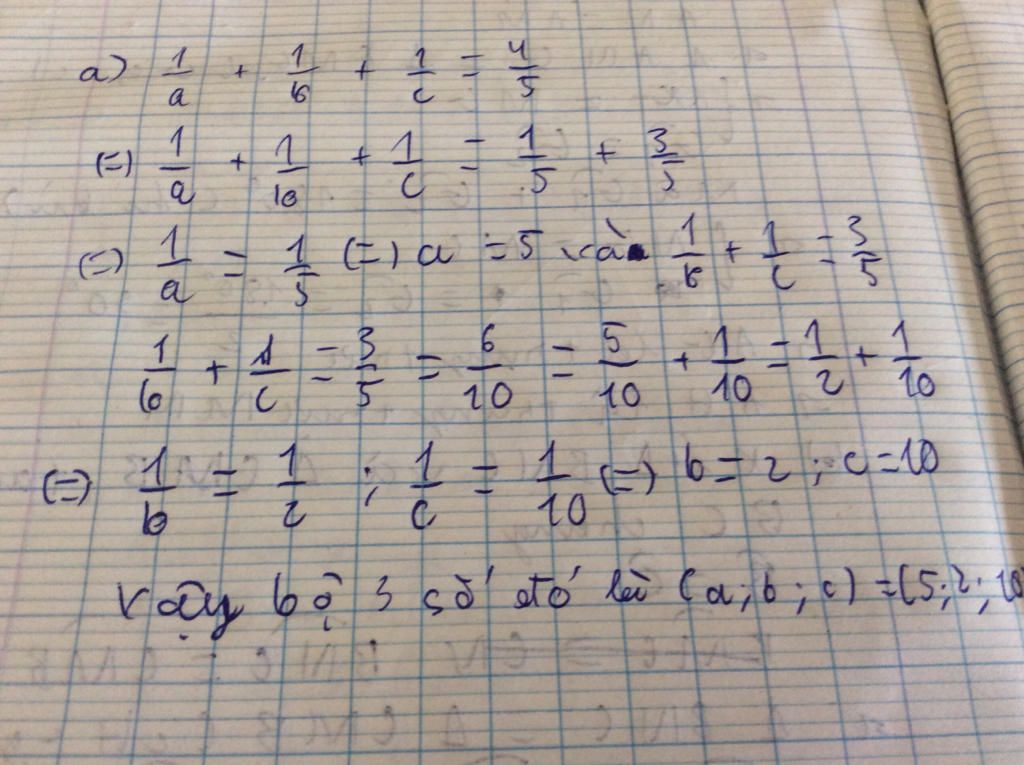 a) 1/a + 1/b + 1/c = 4/5
(=) 1/a + 1/b + 1/c = 1/5 + 3/5
(=) 1/a = 1/5 (=) a = 5 và 1/b + 1/c = 3/5
1/b + 1/c = 3/5 = 6/10 = 5/10 + 1/10 = 1/2 + 1/10
(=) 1/b = 1/2 ; 1/c = 1/10 (=) b = 2 ; c = 10
Vậy bộ 3 số đó là (a; b; c) = (5; 2; 10